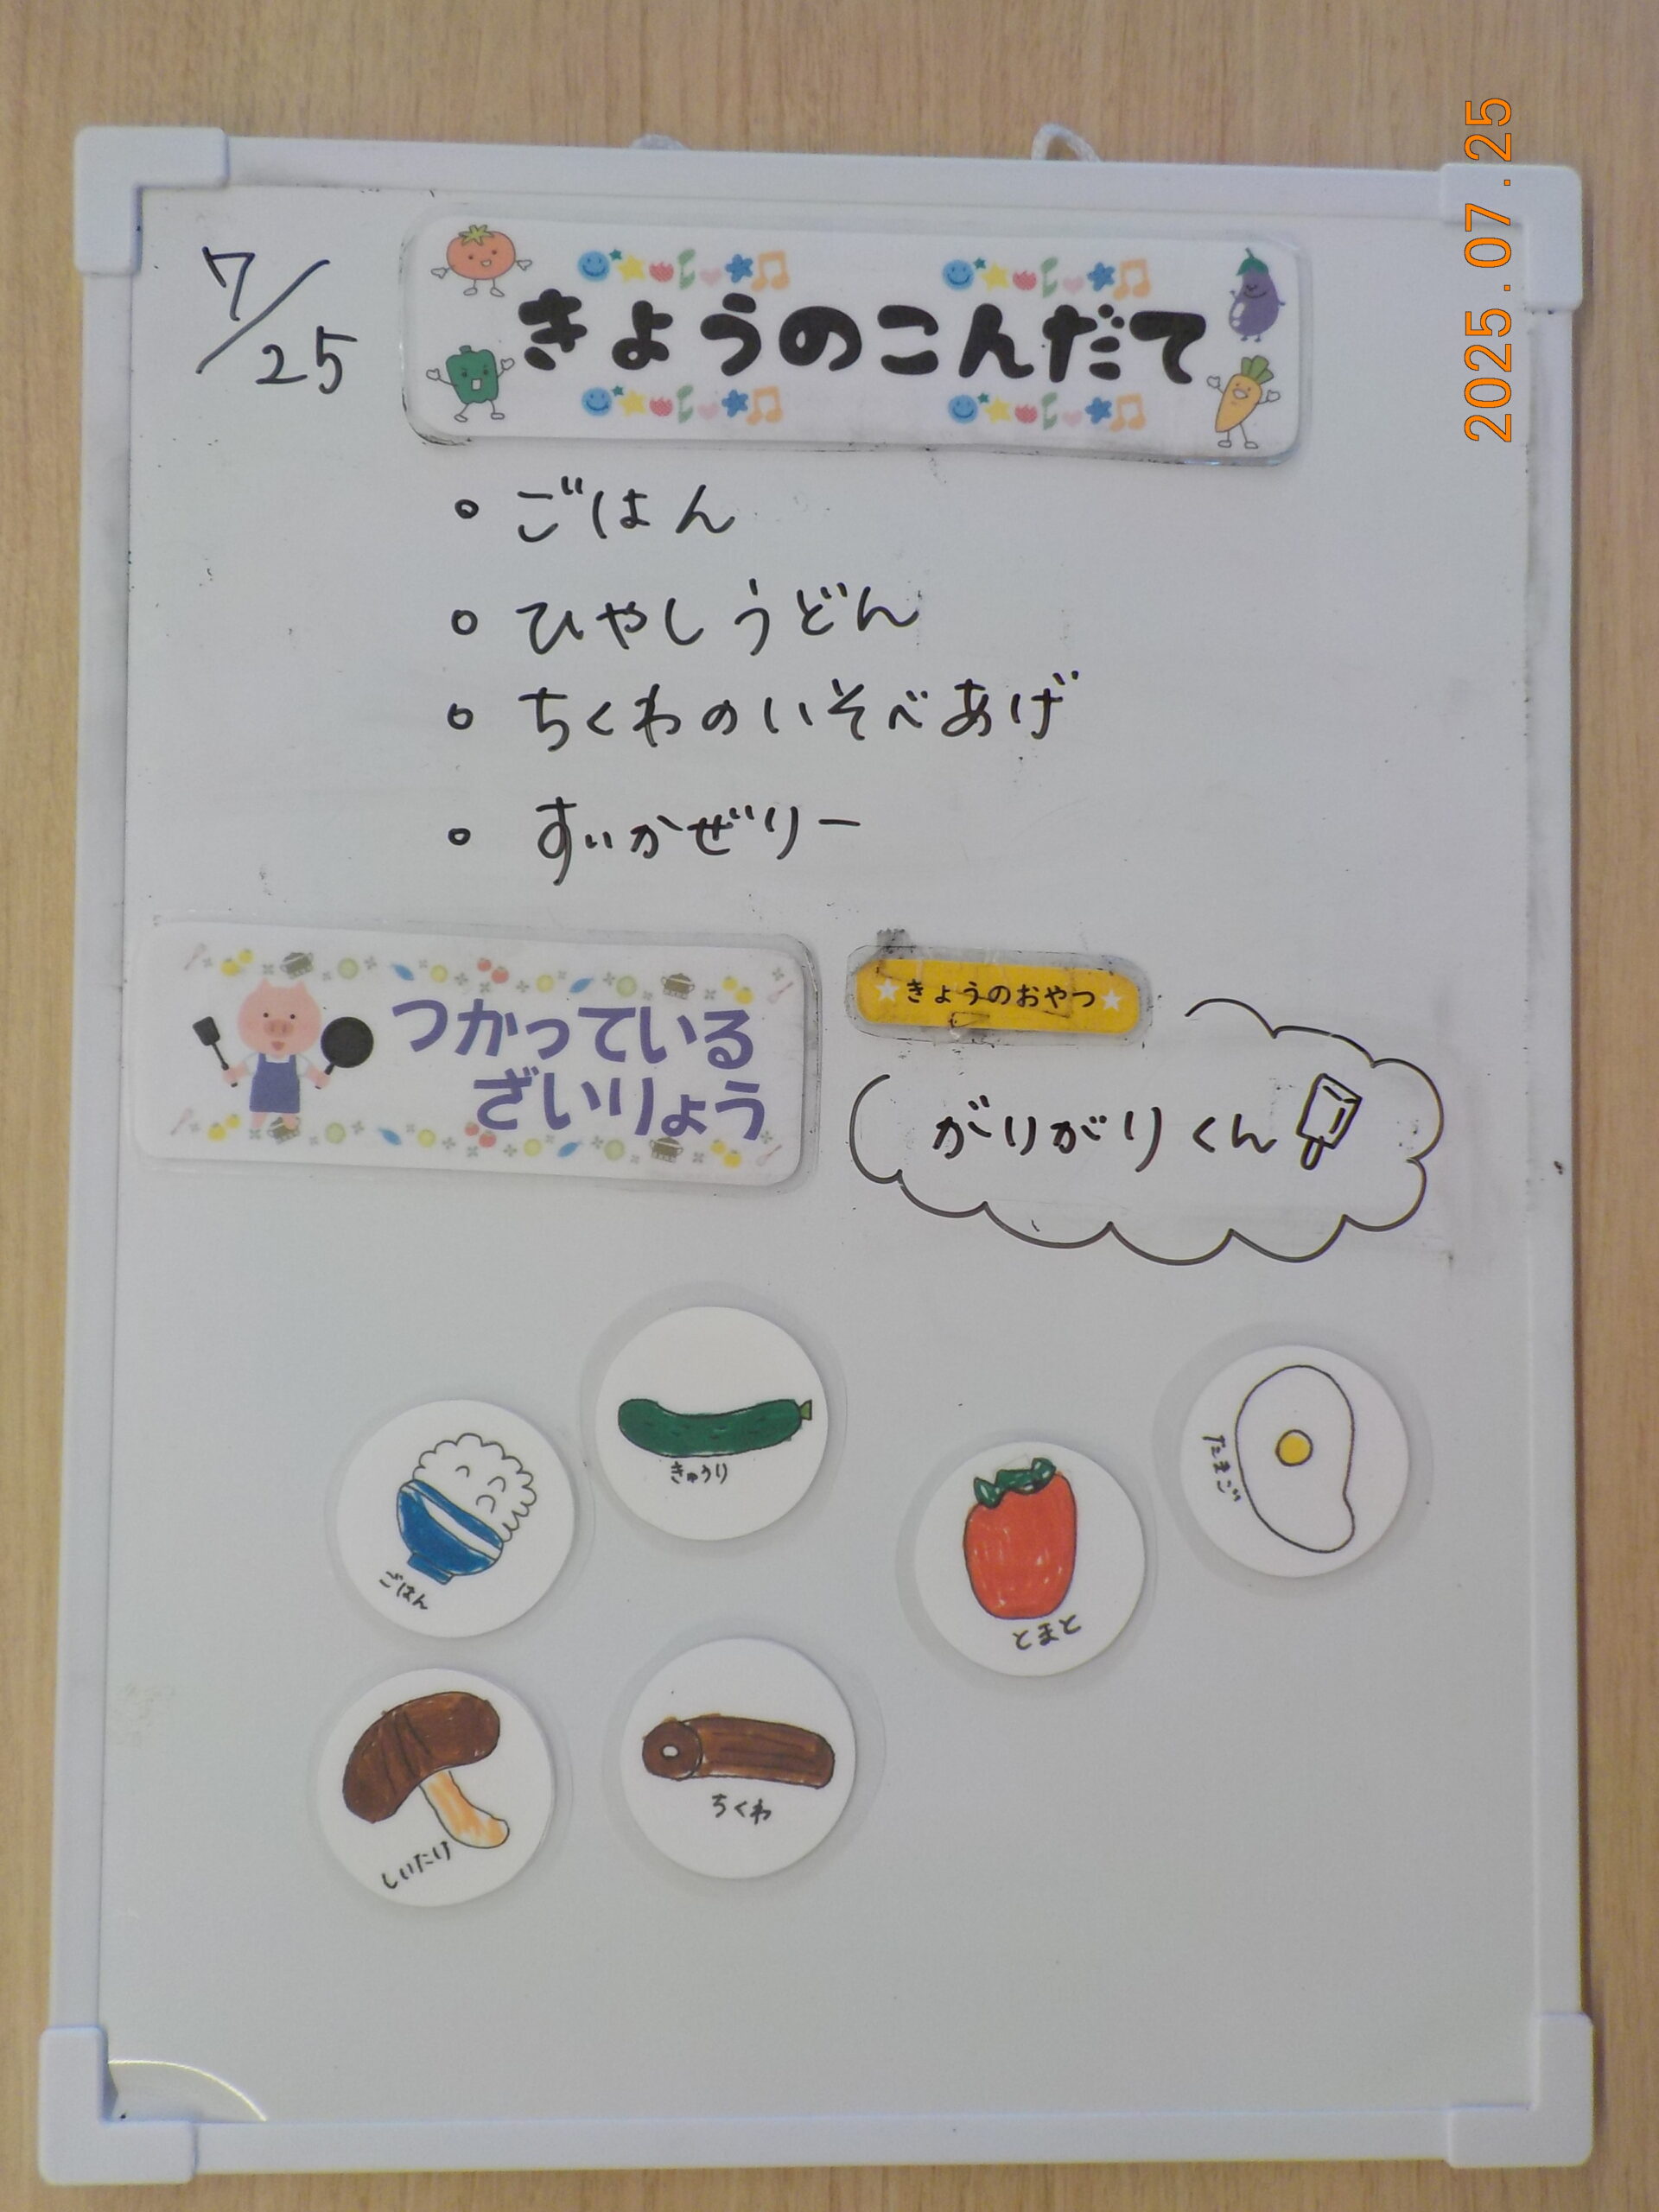 7/25
きょうのこんだて
。ごはん
。ひやしうどん
。ちくわのいそべあげ
。すいかぜりー
つかっている
ざいりょう
★きょうのおやつ★
がりがりくん
きゅうり
たまご
ごはん
とまと
しいたけ
ちくわ
2025.07.25